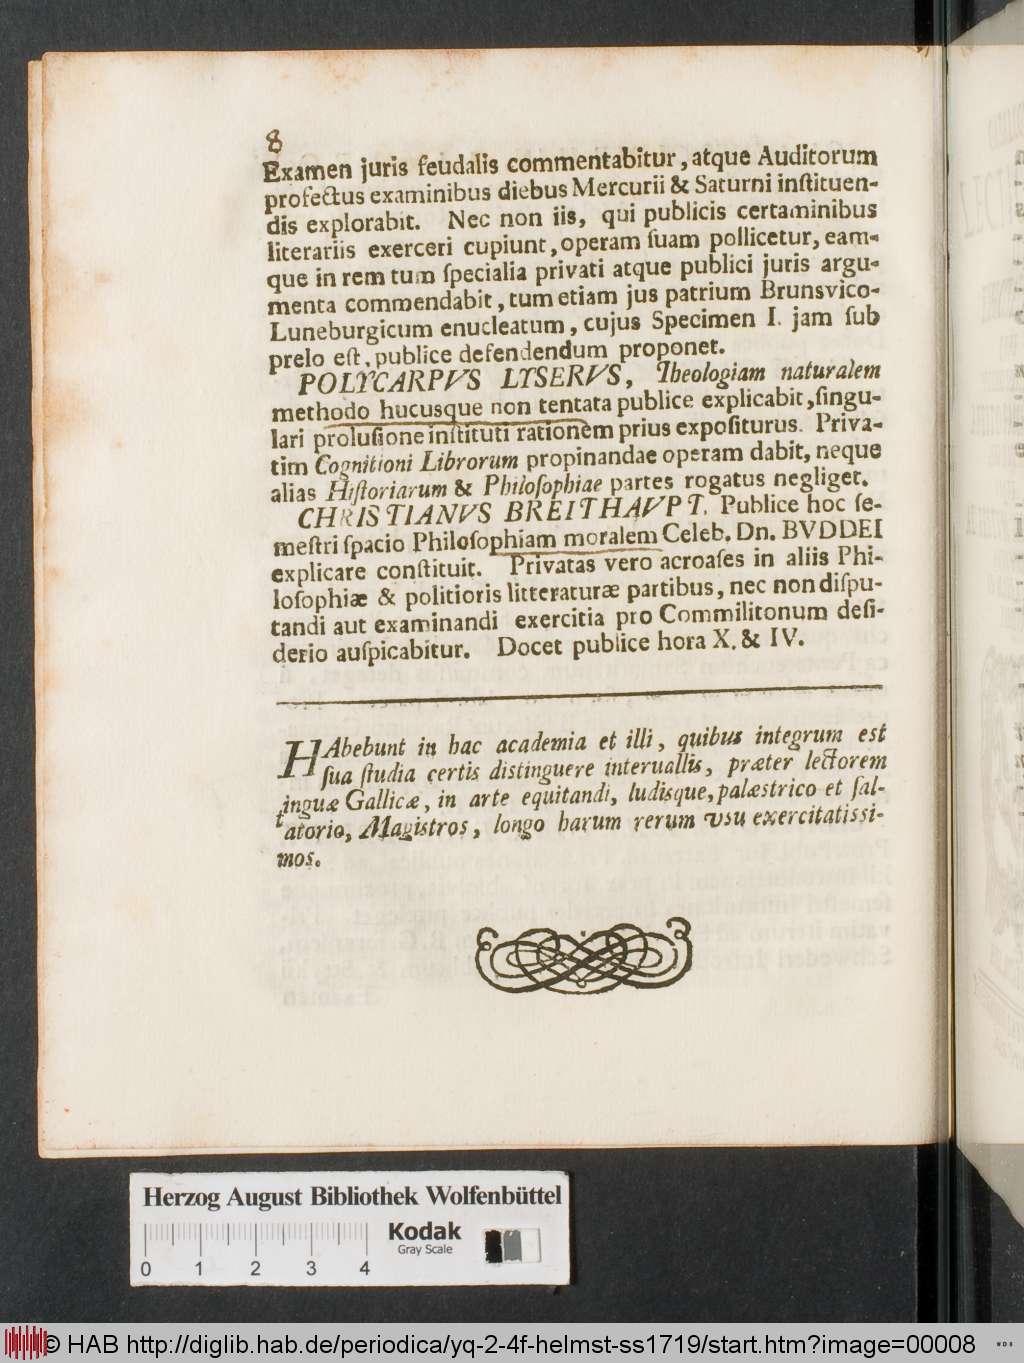 8
Examen juris feudalis commentabitur, atque Auditorum
profectus examinibus diebus Mercurii & Saturni inſtituen-
dis explorabit. Nec non iis, qui publicis certaminibus
literariis exerceri cupiunt, operam ſuam pollicetur, eam-
que in rem tum ſpecialia privati atque publici juris argu-
menta commendabit, tum etiam jus patrium Brunsvico-
Luneburgicum enucleatum, cujus Specimen I. jam ſub
prelo eſt, publice defendendum proponet.
POLYCARPVS LYSERVS, Theologiam naturalem
methodo hucusque non tentata publice explicabit, ſingu-
lari proluſione inſtituti rationem prius expoſiturus. Priva-
tim Cognitioni Librorum propinandae operam dabit, neque
alias Hiſtoriarum & Philoſophiae partes rogatus negliget.
CHRISTIANVS BREITHAVPT. Publice hoc ſe-
meſtri ſpacio Philoſophiam moralem Celeb. Dn. BVDDEI
explicare conſtituit. Privatas vero acroaſes in aliis Phi-
loſophiæ & politioris litteraturæ partibus, nec non diſpu-
tandi aut examinandi exercitia pro Commilitonum deſi-
derio auſpicabitur. Docet publice hora X. & IV.
HAbebunt in hac academia et illi, quibus integrum est
ſua ſtudia certis distinguere interuallis, præter lectorem
linguæ Gallicæ, in arte equitandi, ludisque, palæstrico et ſal-
tatorio, Magistros, longo harum rerum vsu exercitatissi-
mos.
Herzog August Bibliothek Wolfenbüttel
Kodak
Gray Scale
0 1 2 3 4
© HAB http://diglib.hab.de/periodica/yq-2-4f-helmst-ss1719/start.htm?image=00008